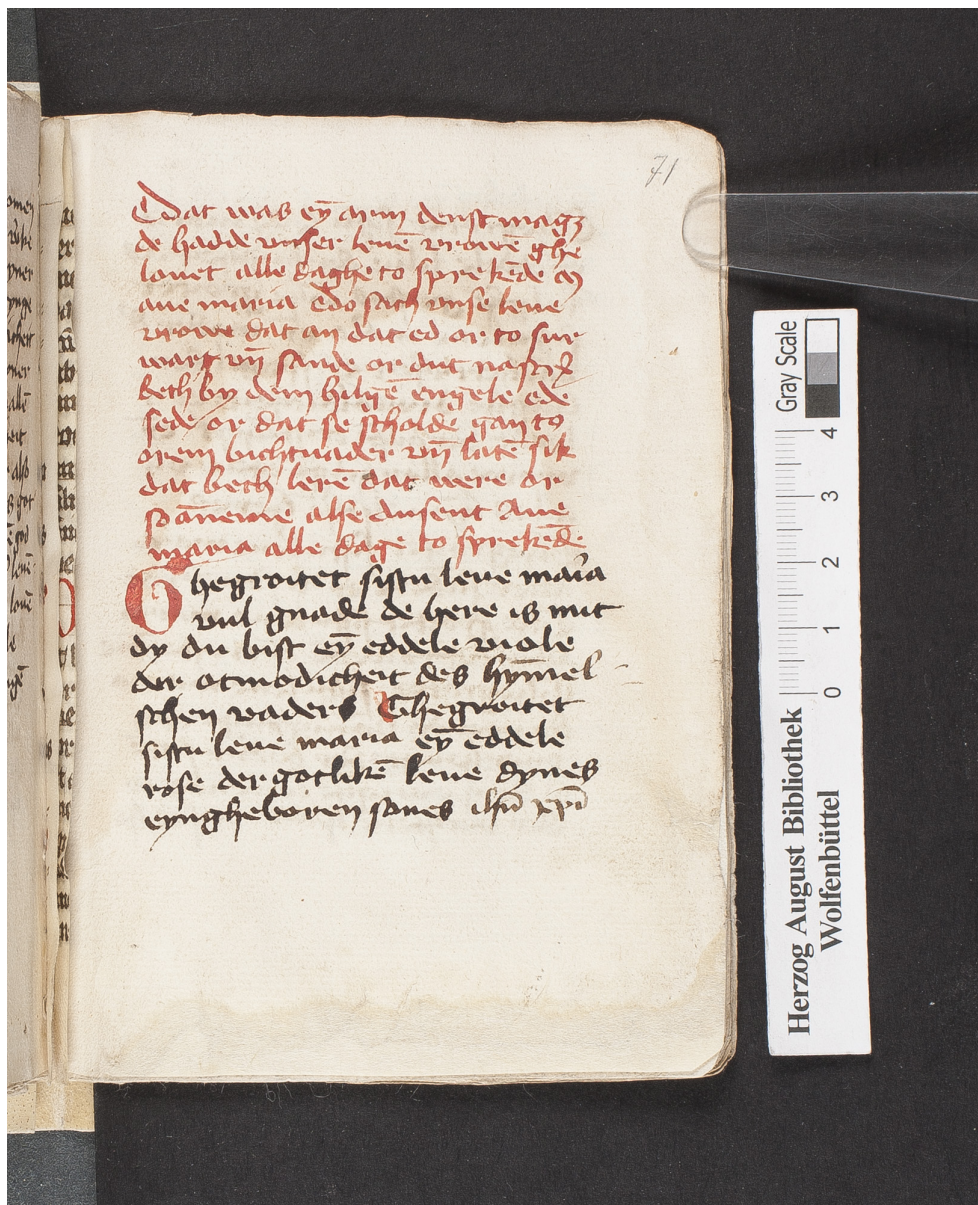 71
Dat was eȳ arm denst magz
de hadde vnser leuē vrowē ghe
louet alle daghe to sprekēde
aue maria do sach vnse leue
vrowe dat an dat ed or to sur
wart vn̄ sande or dut
beth by dem hilgē engele
sede or dat se scholde gan to
orem bichtuader vn̄ latē sik
dat beth lerē dat were or
so alse dusent Aue
maria alle dage to sprekēde
Ghegroitet sistu leue maria
vul gnade de here is mit
dy du bist eȳ eddele viole
der otmodicheit des hȳmel
schen vaders Ghegroitet
sistu leue maria eȳ eddele
rose der gotlikē leue dynes
eyngheboren sones ihū xpī
Gray Scale
0 1 2 3 4
Herzog August Bibliothek
Wolfenbüttel